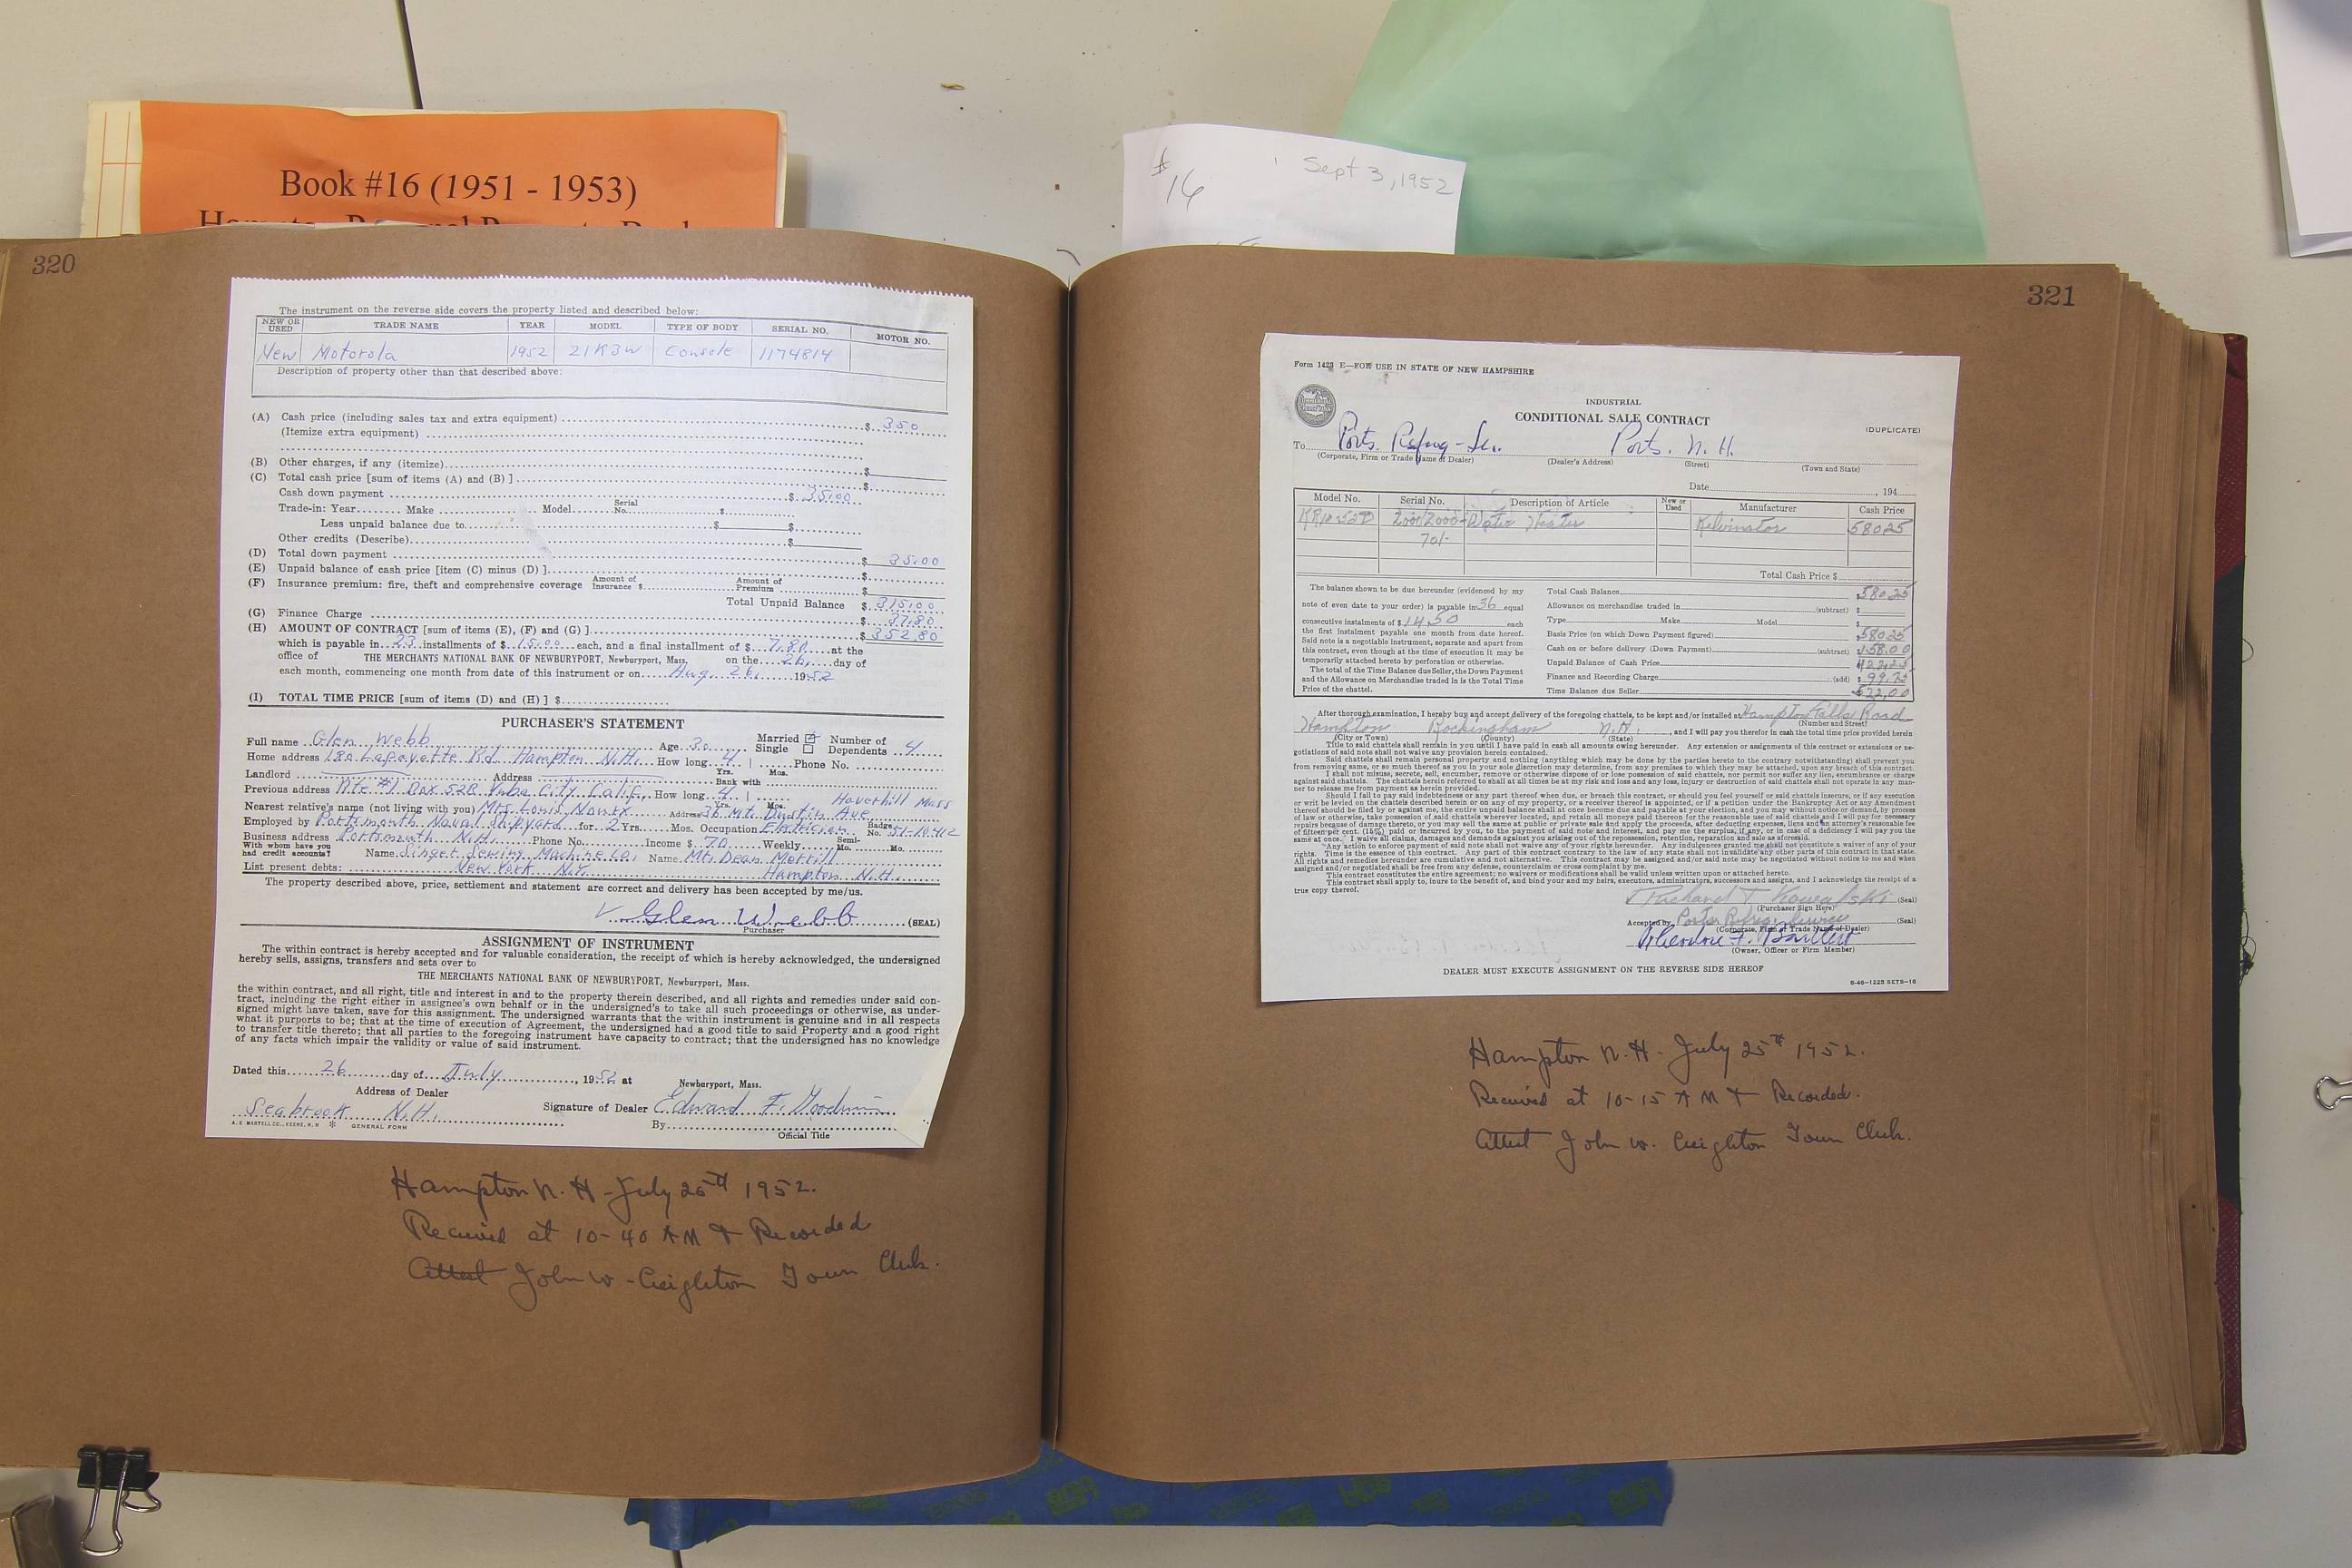 Book #16 (1951 - 1953)
# 16
Sept 3, 1952
320
The instrument on the reverse side covers the property listed and described below:
NEW OR USED TRADE NAME YEAR MODEL TYPE OF BODY SERIAL NO. MOTOR NO.
New Motorola 1952 21K3W Console 1174814
Description of property other than that described above:
(A) Cash price (including sales tax and extra equipment) $ 350
(Itemize extra equipment)
(B) Other charges, if any (itemize) $
(C) Total cash price [sum of items (A) and (B) ] $
Cash down payment $ 35.00
Trade-in: Year Make Model Serial No. $
Less unpaid balance due to $ $
Other credits (Describe) $
(D) Total down payment $ 35.00
(E) Unpaid balance of cash price [item (C) minus (D) ] $
(F) Insurance premium: fire, theft and comprehensive coverage Amount of Insurance $ Amount of Premium $
Total Unpaid Balance $ 315.00
(G) Finance Charge $ 37.80
(H) AMOUNT OF CONTRACT [sum of items (E), (F) and (G) ] $ 352.80
which is payable in 23 installments of $ 15.00 each, and a final installment of $ 7.80 at the
office of THE MERCHANTS NATIONAL BANK OF NEWBURYPORT, Newburyport, Mass. on the 26 day of
each month, commencing one month from date of this instrument or on Aug. 26, 1952
(I) TOTAL TIME PRICE [sum of items (D) and (H) ] $
PURCHASER'S STATEMENT
Full name Glen Webb Age 30 Married Single Number of Dependents 4
Home address 180 Lafayette Rd Hampton N.H. How long 4 Yrs. Mos. Phone No.
Landlord Address Bank with
Previous address Rte #1 Box 528 Yuba City Calif. How long 4 Yrs. Mos. Haverhill Mass
Nearest relative's name (not living with you) Mrs. Louis Address 36 Mt. Dustin Ave
Employed by Portsmouth Naval Shipyard for 2 Yrs. Mos. Occupation Electrician Badge No. 51-10412
Business address Portsmouth N.H. Phone No. Income $ 70 Weekly Semi-Mo. Mo.
With whom have you had credit accounts? Name Singer Sewing Machine Co. Name Mr. Dean Merrill
List present debts: New York N.Y. Hampton N.H.
The property described above, price, settlement and statement are correct and delivery has been accepted by me/us.
Glen Webb (SEAL)
Purchaser
ASSIGNMENT OF INSTRUMENT
The within contract is hereby accepted and for valuable consideration, the receipt of which is hereby acknowledged, the undersigned
hereby sells, assigns, transfers and sets over to
THE MERCHANTS NATIONAL BANK OF NEWBURYPORT, Newburyport, Mass.
the within contract, and all right, title and interest in and to the property therein described, and all rights and remedies under said con-
tract, including the right either in assignee's own behalf or in the undersigned's to take all such proceedings or otherwise, as under-
signed might have taken, save for this assignment. The undersigned warrants that the within instrument is genuine and in all respects
what it purports to be; that at the time of execution of Agreement, the undersigned had a good title to said Property and a good right
to transfer title thereto; that all parties to the foregoing instrument have capacity to contract; that the undersigned has no knowledge
of any facts which impair the validity or value of said instrument.
Dated this 26 day of July, 1952 at Newburyport, Mass.
Address of Dealer
Seabrook N.H. Signature of Dealer Edward F. Goodwin
By
Official Title
A. E. MARTELL CO., KEENE, N. H. * GENERAL FORM
Hampton N. H - July 26th 1952.
Received at 10-40 AM & Recorded
Attest John W. Creighton Town Clerk.
321
Form 1423 E—FOR USE IN STATE OF NEW HAMPSHIRE
INDUSTRIAL
CONDITIONAL SALE CONTRACT
(DUPLICATE)
To Ports. Refrig - Se. Ports. N. H.
(Corporate, Firm or Trade Name of Dealer) (Dealer's Address) (Street) (Town and State)
Date , 194
Model No. Serial No. Description of Article New or Used Manufacturer Cash Price
Water Heater Kelvinator 580.25
Total Cash Price $
The balance shown to be due hereunder (evidenced by my
note of even date to your order) is payable in 36 equal
consecutive instalments of $ 14.50 each
the first instalment payable one month from date hereof.
Said note is a negotiable instrument, separate and apart from
this contract, even though at the time of execution it may be
temporarily attached hereto by perforation or otherwise.
The total of the Time Balance due Seller, the Down Payment
and the Allowance on Merchandise traded in is the Total Time
Price of the chattel.
Total Cash Balance $ 580.25
Allowance on merchandise traded in (subtract) $
Type Make Model $
Basis Price (on which Down Payment figured) $ 580.25
Cash on or before delivery (Down Payment) (subtract) $ 158.00
Unpaid Balance of Cash Price $ 422.25
Finance and Recording Charge (add) $ 99.75
Time Balance due Seller $ 522.00
After thorough examination, I hereby buy and accept delivery of the foregoing chattels, to be kept and/or installed at Hampton Falls Road
(Number and Street)
Hampton Rockingham N.H. , and I will pay you therefor in cash the total time price provided herein
(City or Town) (County) (State)
Title to said chattels shall remain in you until I have paid in cash all amounts owing hereunder. Any extension or assignments of this contract or extensions or ne-
gotiations of said note shall not waive any provision herein contained.
Said chattels shall remain personal property and nothing (anything which may be done by the parties hereto to the contrary notwithstanding) shall prevent you
from removing same, or so much thereof as you in your sole discretion may determine, from any premises to which they may be attached, upon any breach of this contract.
I shall not misuse, secrete, sell, encumber, remove or otherwise dispose of or lose possession of said chattels, nor permit nor suffer any lien, encumbrance or charge
against said chattels. The chattels herein referred to shall at all times be at my risk and loss and any loss, injury or destruction of said chattels shall not operate in any man-
ner to release me from payment as herein provided.
Should I fail to pay said indebtedness or any part thereof when due, or breach this contract, or should you feel yourself or said chattels insecure, or if any execution
or writ be levied on the chattels described herein or on any of my property, or a receiver thereof is appointed, or if a petition under the Bankruptcy Act or any Amendment
thereof should be filed by or against me, the entire unpaid balance shall at once become due and payable at your election, and you may without notice or demand, by process
of law or otherwise, take possession of said chattels wherever located, and retain all moneys paid thereon for the reasonable use of said chattels and I will pay for necessary
repairs because of damage thereto, or you may sell the same at public or private sale and apply the proceeds, after deducting expenses, liens and an attorney's reasonable fee
of fifteen per cent. (15%) paid or incurred by you, to the payment of said note and interest, and pay me the surplus, if any, or in case of a deficiency I will pay you the
same at once. I waive all claims, damages and demands against you arising out of the repossession, retention, reparation and sale as aforesaid.
Any action to enforce payment of said note shall not waive any of your rights hereunder. Any indulgences granted me shall not constitute a waiver of any of your
rights. Time is the essence of this contract. Any part of this contract contrary to the law of any state shall not invalidate any other parts of this contract in that state.
All rights and remedies hereunder are cumulative and not alternative. This contract may be assigned and/or said note may be negotiated without notice to me and when
assigned and/or negotiated shall be free from any defense, counterclaim or cross complaint by me.
This contract constitutes the entire agreement; no waivers or modifications shall be valid unless written upon or attached hereto.
This contract shall apply to, inure to the benefit of, and bind your and my heirs, executors, administrators, successors and assigns, and I acknowledge the receipt of a
true copy thereof.
Richard T Kowalski (Seal)
(Purchaser Sign Here)
Accepted by (Seal)
(Corporate, Firm or Trade Name of Dealer)
Theodore F. Bartlett
(Owner, Officer or Firm Member)
DEALER MUST EXECUTE ASSIGNMENT ON THE REVERSE SIDE HEREOF
8-46-1225 SETS-16
Hampton N. H - July 25th 1952.
Received at 10-15 AM & Recorded.
Attest John W. Creighton Town Clerk.